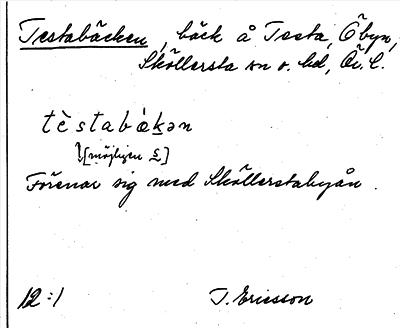 Testabäcken, bäck å Testa, Öbyn,
Sköllersta sn o. hd, Ör. l.
tè̀stabæ̀k̲ən
[möjligen s̲]
Förenar sig med Sköllerstabyån.
12:1
T. Ericsson